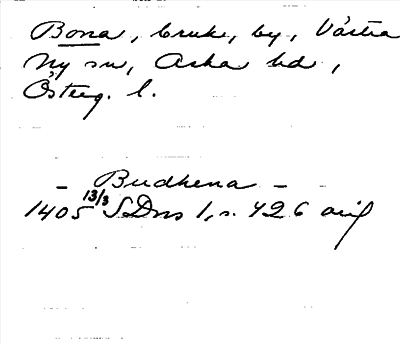 Bona, bruk, by, Västra
Ny sn, Aska hd,
Österg. l.
– Budhena –
1405 13/3 SDns 1, s. 426 avs